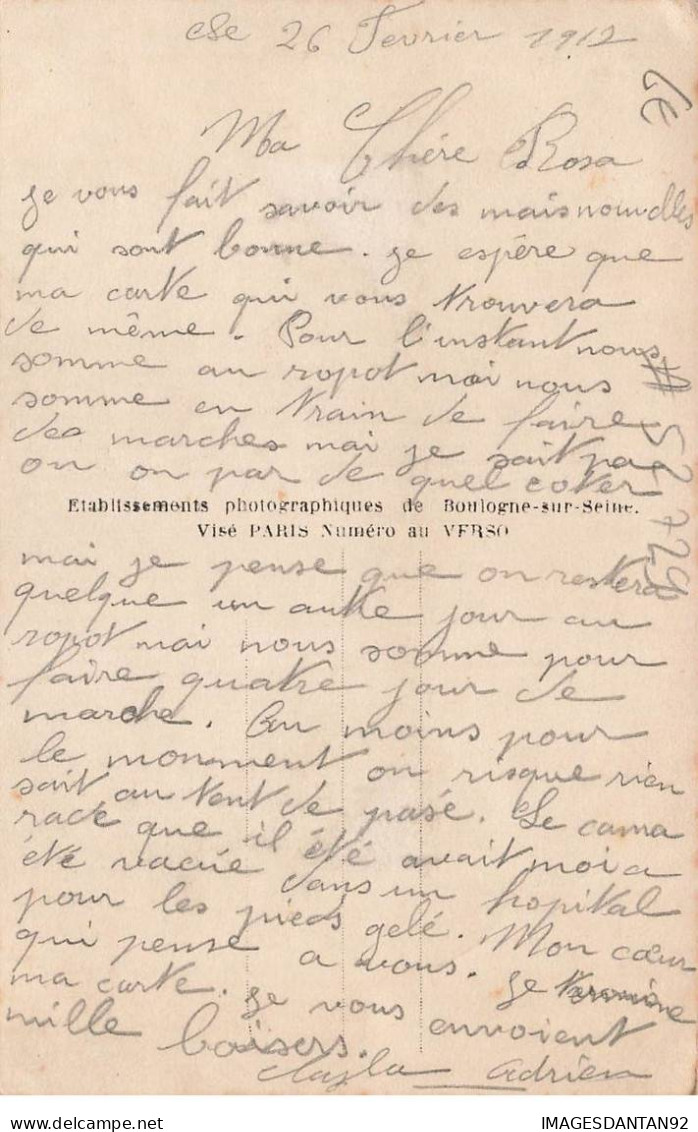 Le 26 Fevrier 1912
Ma Chére Rosa
je vous fait savoir des mais nouvelles
qui sont bonne. je espére que
ma carte qui vous trouvera
de même. Pour l'instant nous
somme au ropot mai nous
somme en train de faire
des marches mai je sait pa
on on par de quel coter
# 52729
Etablissements photographiques de Boulogne-sur-Seine.
Visé PARIS Numéro au VERSO
mai je pense que on restera
quelque un autre jour au
ropot mai nous somme pour
faire quatre jour de
marche. Au moins pour
le monment on risque rien
sait au tent de pasé. Le cama
rade que il été avait moi a
été vacué dans un hopital
pour les pieds gelé. Mon cœur
qui pense a vous. je termine
ma carte. je vous envoient
mille baisers.
Adrien
IMAGESDANTAN92